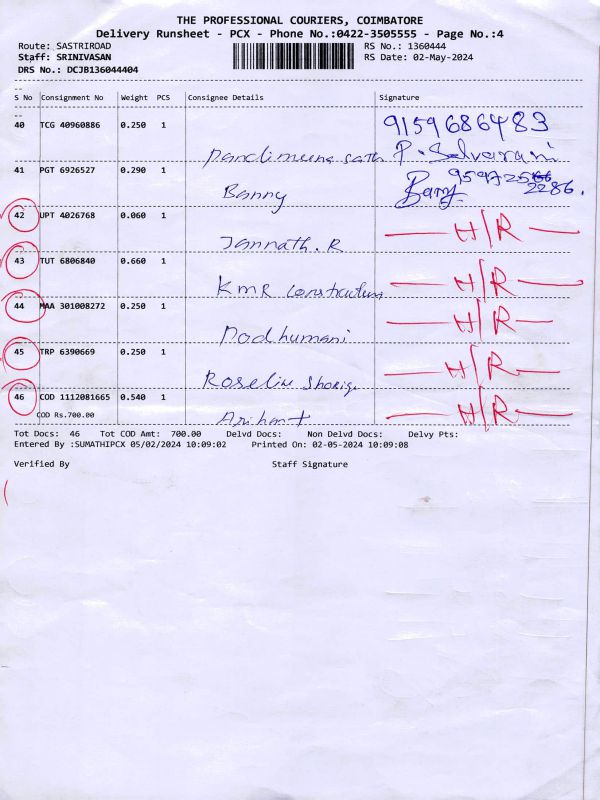 THE PROFESSIONAL COURIERS, COIMBATORE
Delivery Runsheet - PCX - Phone No.:0422-3505555 - Page No.:4
Route: SASTRIROAD RS No.: 1360444
Staff: SRINIVASAN RS Date: 02-May-2024
DRS No.: DCJB136044404
S No Consignment No Weight PCS Consignee Details Signature
40 TCG 40960886 0.250 1 9159686483
P. Selvarani
41 PGT 6926527 0.290 1
Banny
42 UPT 4026768 0.060 1 H/R
Jannath. R
43 TUT 6806840 0.660 1 H/R
KMR
44 MAA 301008272 0.250 1 H/R
45 TRP 6390669 0.250 1 H/R
46 COD 1112081665 0.540 1 H/R
COD Rs.700.00
Tot Docs: 46 Tot COD Amt: 700.00 Delvd Docs: Non Delvd Docs: Delvy Pts:
Entered By :SUMATHIPCX 05/02/2024 10:09:02 Printed On: 02-05-2024 10:09:08
Verified By Staff Signature